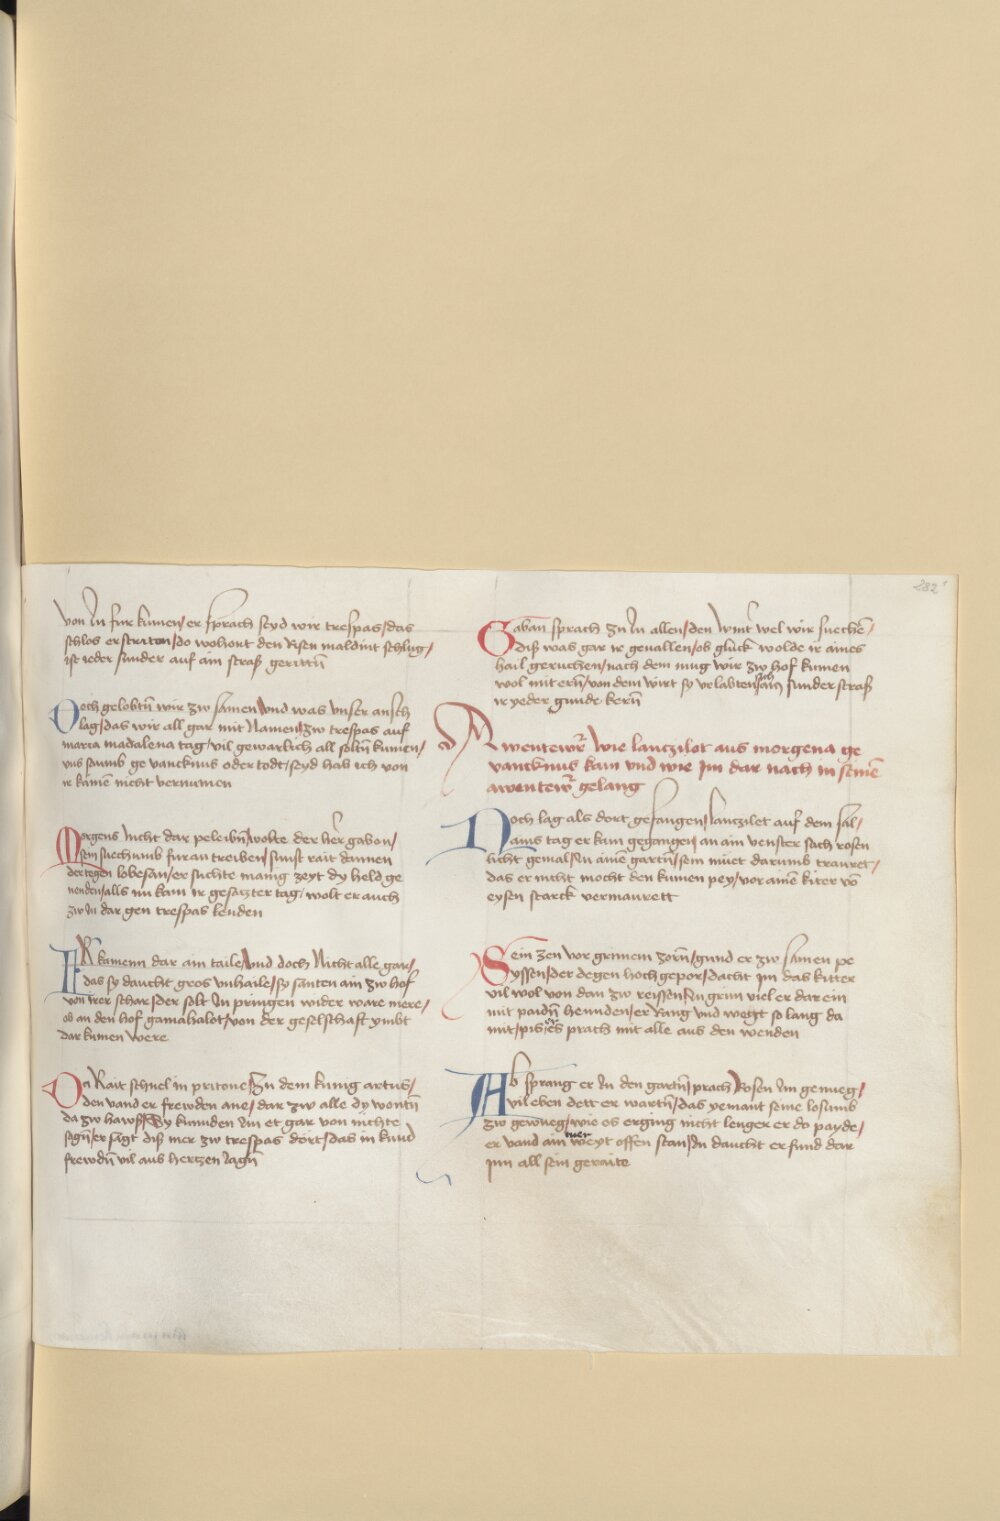 282
von In fur kumen/er sprach seyd wir trespas/das
schlos erstriten/do wohont den Risen maldint schlug/
ist ieder sunder auf ain straß geritn̄
Doch gelobtn̄ wir zw samen/und was unser ansch
lag/das wir all gar mit Namen/zw trespas auf
maria madalena tag/vil gewarlich all soltn̄ kumen/
uns saumb ge vancknus oder todt/seyd hab ich von
ir kaine͞ nicht vernumen
Morgens Nicht dar peleibn̄/wolte der her gabon/
sein suechumb furan treiben/sunst rait dannen
der tegen lobesan/er suchte manig zeyt dy held ge
nenden/alls nu kam ir gesatzter tag/wolt er auch
zw In dar gen trespas lenden
Er kamenn dar ain taile/und doch Nicht alle gar/
das sy daucht gros unhaile/sy santen ain zw hof
von irer schar/der solt In pringen wider ware mere/
ob an den hof gamahalot/von der geselschaft ymbt
dar kumen were
Da Rait schnel in pritone/Zu dem kunig artus/
den vand er frewden ane/dar zw alle dy wontn̄
da zw hawss/Sy kunnden Im et gar von nichte
sagn̄/er sagt diß mer zw trespas dort/das in kund
frewdn̄ vil aus hertzen Jagn̄
Gaban sprach zu In allen/den wirt wel wir suechē/
diß was gar ir gevallen/ob gluck wolde ir aines
hail geruchen/nach dem mug wir zw hof kumen
wol mit ern̄/von dem wirt sy urlabten sich sunder straß
ir yeder gunde kern̄
Awentewr̄ wie lanczilot aus morgena ge
vancknus kam und wie Im dar nach in seinē
awentewr̄ gelang
Noch lag als dort gefangen/lanczilet auf dem sal/
ains tag er kam gegangen/an ain venster sach rosen
licht gemal/In ainē gartn̄/sein muet darumb trauret/
das er nicht mocht den kumen pey/vor ainē kiter vō
eysen starck vermaurett
Sein zen vor grimem zorn̄/gund er zw samen pe
yssen/der degen hoch gepor/dacht Im das kitter
vil wol von dan zw reissen/In grim viel er dar ein
mit paidn̄ hennden/er Rang und wegt so lang da
mit/pis er es prach mit alle aus den wenden
Ab sprang er In den gartn̄/prach Rosen Im genueg/
vil eben dett er wartn̄/das yemant seine losumb
zw gewueg/wie es erging nicht lenger er do payde/
er vand ain tuer weyt offen stan/In daucht er fund dar
Inn all sein geraite